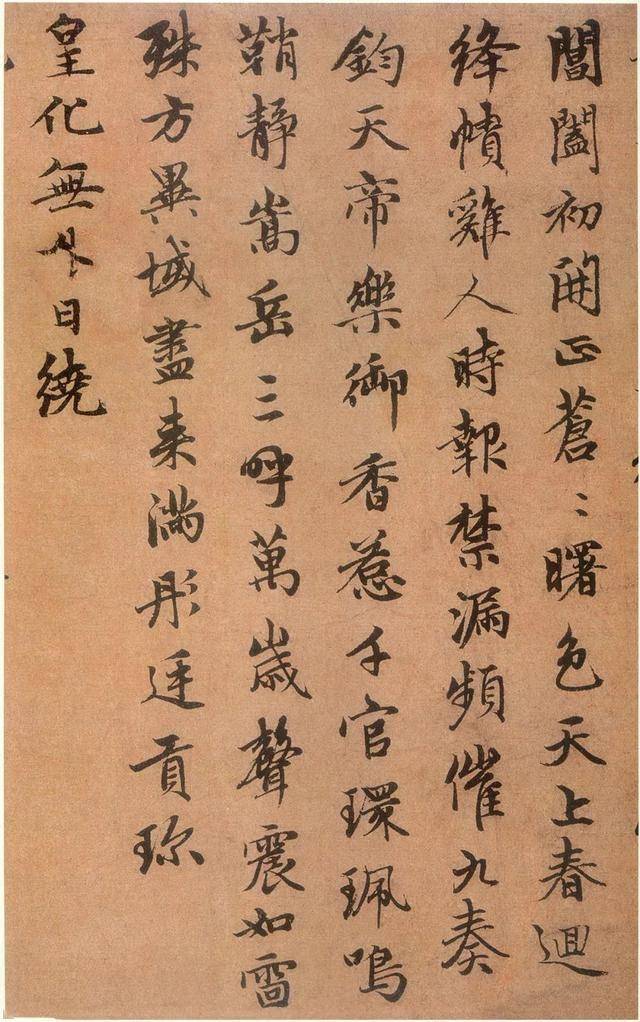 閶闔初開正蒼〻曙色天上春迴
絳幘雞人時報禁漏頻催九奏
鈞天帝樂御香惹千官環珮鳴
鞘靜嵩岳三呼萬歲聲震如雷
殊方異域盡来滿彤廷貢珎
皇化無外日繞